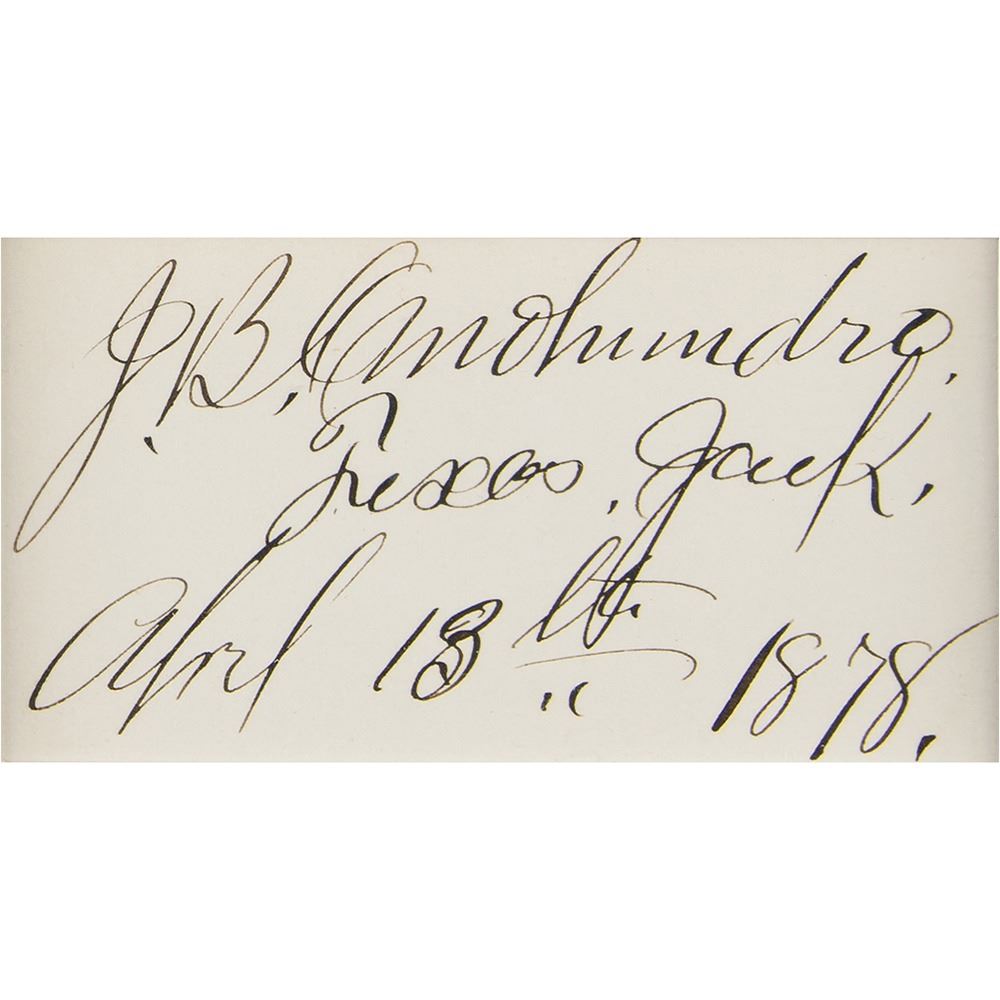 J. B. Omohundro.
Texas. Jack.
April 18th 1878.